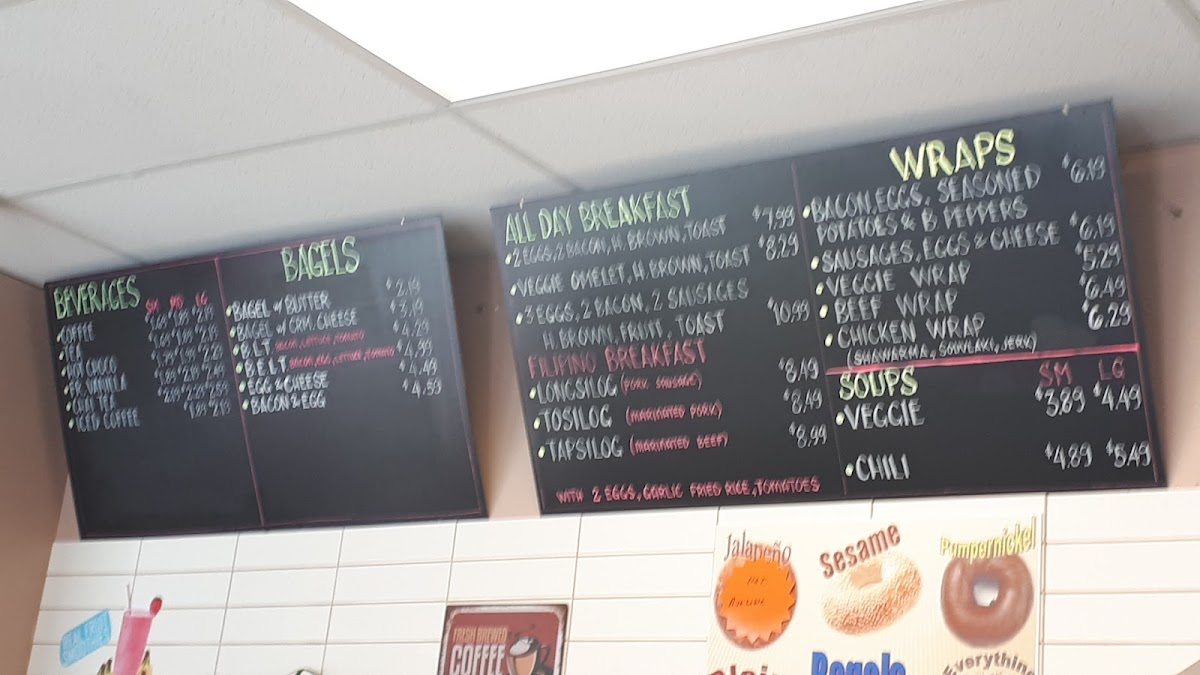 BEVERAGES SM MD LG
COFFEE
TEA
HOT CHOCO
FR. VANILLA
ICED TEA
ICED COFFEE
BAGELS
BAGEL w/ BUTTER $2.19
BAGEL w/ CRM. CHEESE $3.19
B.L.T (BACON, LETTUCE, TOMATO) $4.29
B.E.L.T (BACON, EGG, LETTUCE, TOMATO) $4.99
EGG & CHEESE $4.49
BACON & EGG $4.59
ALL DAY BREAKFAST
2 EGGS, 2 BACON, H. BROWN, TOAST $7.99
VEGGIE OMELET, H. BROWN, TOAST $8.29
3 EGGS, 2 BACON, 2 SAUSAGES
H. BROWN, FRUIT, TOAST $10.99
FILIPINO BREAKFAST
LONGSILOG (PORK SAUSAGE) $8.49
TOSILOG (MARINATED PORK) $8.49
TAPSILOG (MARINATED BEEF) $8.99
WITH 2 EGGS, GARLIC FRIED RICE, TOMATOES
WRAPS
BACON, EGGS, SEASONED $6.19
POTATOES & B. PEPPERS
SAUSAGES, EGGS & CHEESE $6.19
VEGGIE WRAP $5.29
BEEF WRAP $6.49
CHICKEN WRAP $6.29
(SHAWARMA, SOUVLAKI, JERK)
SOUPS SM LG
VEGGIE $3.89 $4.49
CHILI $4.89 $5.49
FRESH BREWED
COFFEE
Jalapeño
Sesame
Pumpernickel
Bagels
Everything